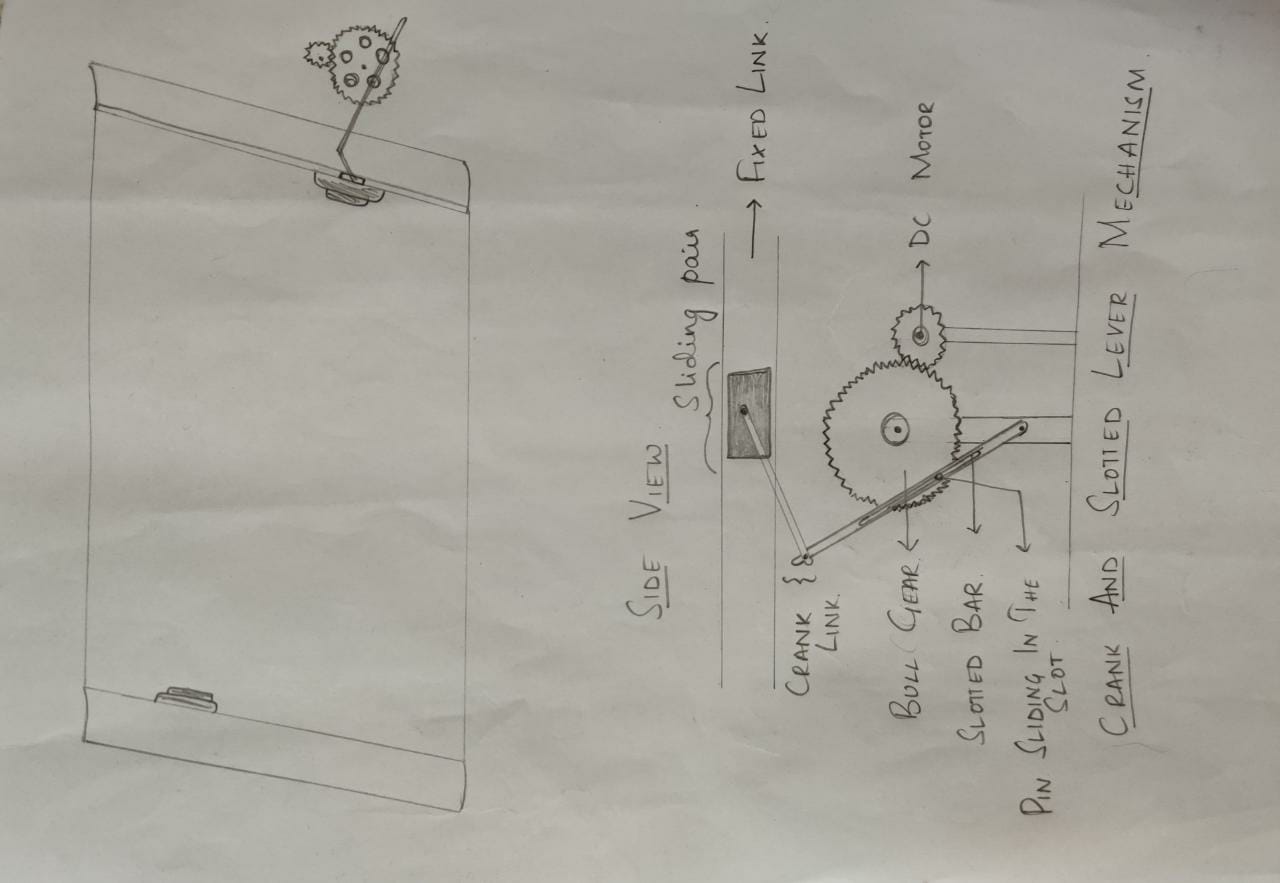 SIDE VIEW
Sliding pair
→ FIXED LINK.
CRANK
LINK.
DC MOTOR
BULL GEAR.
SLOTTED BAR.
PIN SLIDING IN THE
SLOT.
CRANK AND SLOTTED LEVER MECHANISM.